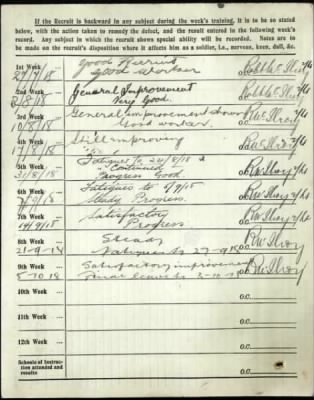 If the Recruit is backward in any subject during the week's training, it is to be so stated
below, with the action taken to remedy the defect, and the result entered in the following week's
record. Any subject in which the recruit shows special ability will be recorded. Notes are to
be made on the recruit's disposition where it affects him as a soldier, i.e., nervous, keen, dull, &c.
1st Week ... good Recruit
27/7/18 good worker
2nd Week ... General Improvement
2/8/18 Very Good.
3rd Week ... General improvement shown
10/8/18 Good worker
4th Week ... Still improving
17/8/18
5th Week ... Fatigues to 24/8/18
31/8/18 Continued Progress Good.
6th Week ... Fatigues to 5/9/18
7/9/18 Steady Progress.
7th Week ... Satisfactory
14/9/18 Progress
8th Week ... Steady
21-9-18 Fatigues to 27-9-18
9th Week ... Satisfactory improvement
5-10-18 Final leave to
10th Week ...
O.C.
11th Week ...
O.C.
12th Week ...
O.C.
Schools of Instruc-
tion attended and
results
O.C.